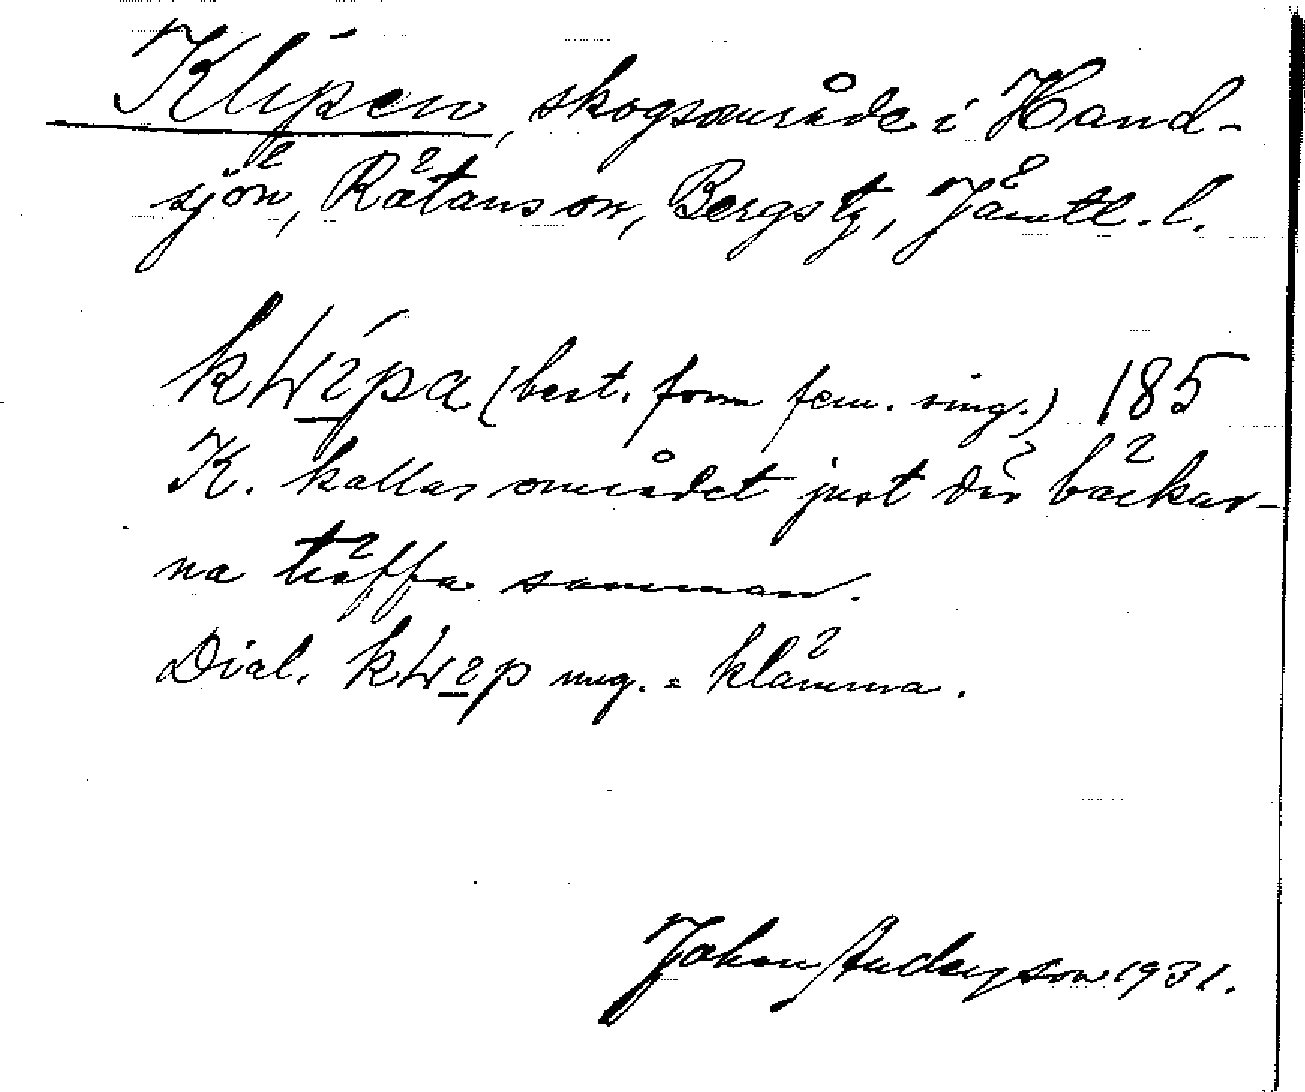 Klipen, skogsområde i Hand-
sjön, Rätans sn, Bergs tg, Jämtl. l.
(best. form fem. sing.) 185
K. kallas området just där bäckar-
na träffa samman.
Dial. ung. = klämma.
Johan Anderson 1931.